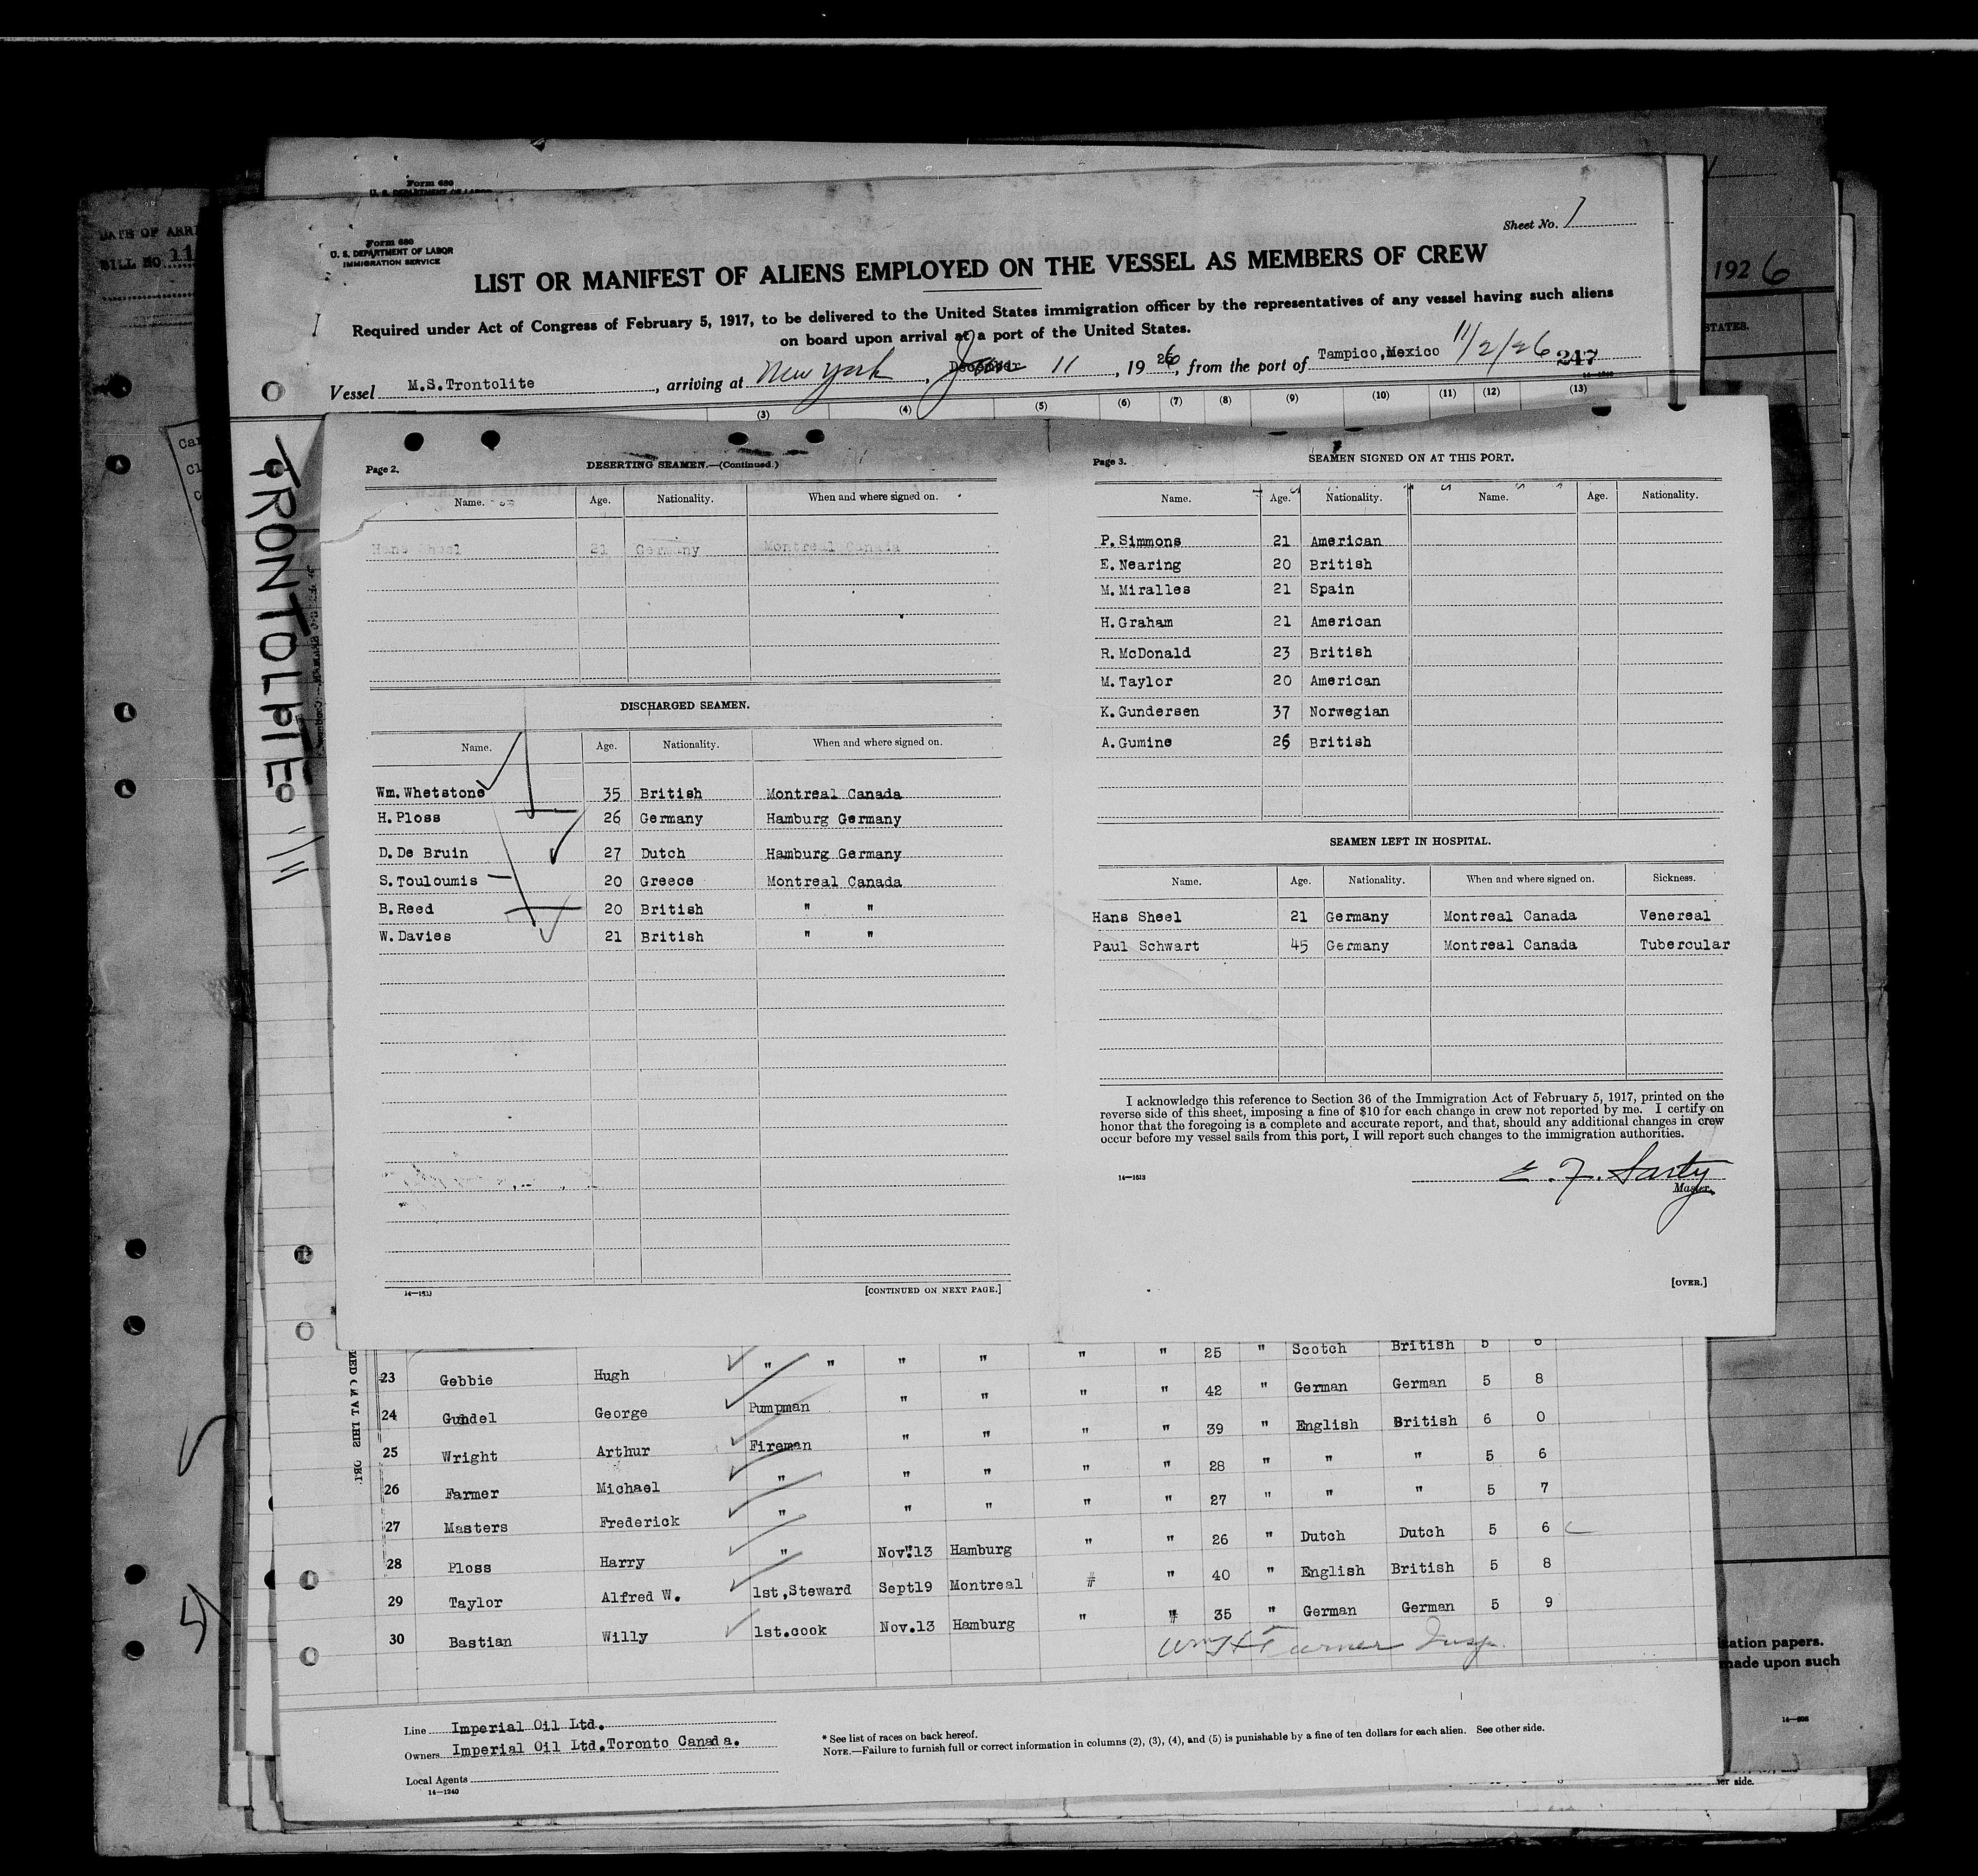 Form 680
U. S. DEPARTMENT OF LABOR
DATE OF ARRI
BILL NO. 11
Form 680
U. S. DEPARTMENT OF LABOR
IMMIGRATION SERVICE
Sheet No. 1
LIST OR MANIFEST OF ALIENS EMPLOYED ON THE VESSEL AS MEMBERS OF CREW
Required under Act of Congress of February 5, 1917, to be delivered to the United States immigration officer by the representatives of any vessel having such aliens
on board upon arrival at a port of the United States.
Vessel M.S.Trontolite, arriving at New York, December Jan 11, 1926, from the port of Tampico,Mexico 11/2/26 247
14-1240
(3) (4) (5) (6) (7) (8) (9) (10) (11) (12) (13)
1926
STATES.
TRONTOLPIE
Page 2.
DESERTING SEAMEN.—(Continued.)
Name. Age. Nationality. When and where signed on.
Hans Sheel 21 Germany Montreal Canada
DISCHARGED SEAMEN.
Name. Age. Nationality. When and where signed on.
Wm. Whetstone 35 British Montreal Canada
H. Ploss 26 Germany Hamburg Germany
D. De Bruin 27 Dutch Hamburg Germany
S. Touloumis 20 Greece Montreal Canada
B. Reed 20 British " "
W. Davies 21 British " "
14-1513
[CONTINUED ON NEXT PAGE.]
Page 3.
SEAMEN SIGNED ON AT THIS PORT.
Name. Age. Nationality. Name. Age. Nationality.
P. Simmons 21 American
E. Nearing 20 British
M. Miralles 21 Spain
H. Graham 21 American
R. McDonald 23 British
M. Taylor 20 American
K. Gundersen 37 Norwegian
A. Gumine 26 British
SEAMEN LEFT IN HOSPITAL.
Name. Age. Nationality. When and where signed on. Sickness.
Hans Sheel 21 Germany Montreal Canada Venereal
Paul Schwart 45 Germany Montreal Canada Tubercular
I acknowledge this reference to Section 36 of the Immigration Act of February 5, 1917, printed on the
reverse side of this sheet, imposing a fine of $10 for each change in crew not reported by me. I certify on
honor that the foregoing is a complete and accurate report, and that, should any additional changes in crew
occur before my vessel sails from this port, I will report such changes to the immigration authorities.
14-1513
E. F. Sarty
Master.
[OVER.]
23 Gebbie Hugh " " " " " " 25 " Scotch British 5 6
24 Gundel George Pumpman " " " " 42 " German German 5 8
25 Wright Arthur Fireman " " " " 39 " English British 6 0
26 Farmer Michael " " " " " 28 " " " 5 6
27 Masters Frederick " " " " " 27 " " " 5 7
28 Ploss Harry " Nov.13 Hamburg " " 26 " Dutch Dutch 5 6
29 Taylor Alfred W. 1st,Steward Sept19 Montreal # " 40 " English British 5 8
30 Bastian Willy 1st.cook Nov.13 Hamburg " " 35 " German German 5 9
Wm H Turner Insp.
Line Imperial Oil Ltd.
Owners Imperial Oil Ltd.Toronto Canada.
Local Agents
14-1240
* See list of races on back hereof.
NOTE.—Failure to furnish full or correct information in columns (2), (3), (4), and (5) is punishable by a fine of ten dollars for each alien. See other side.
ation papers.
made upon such
er side.